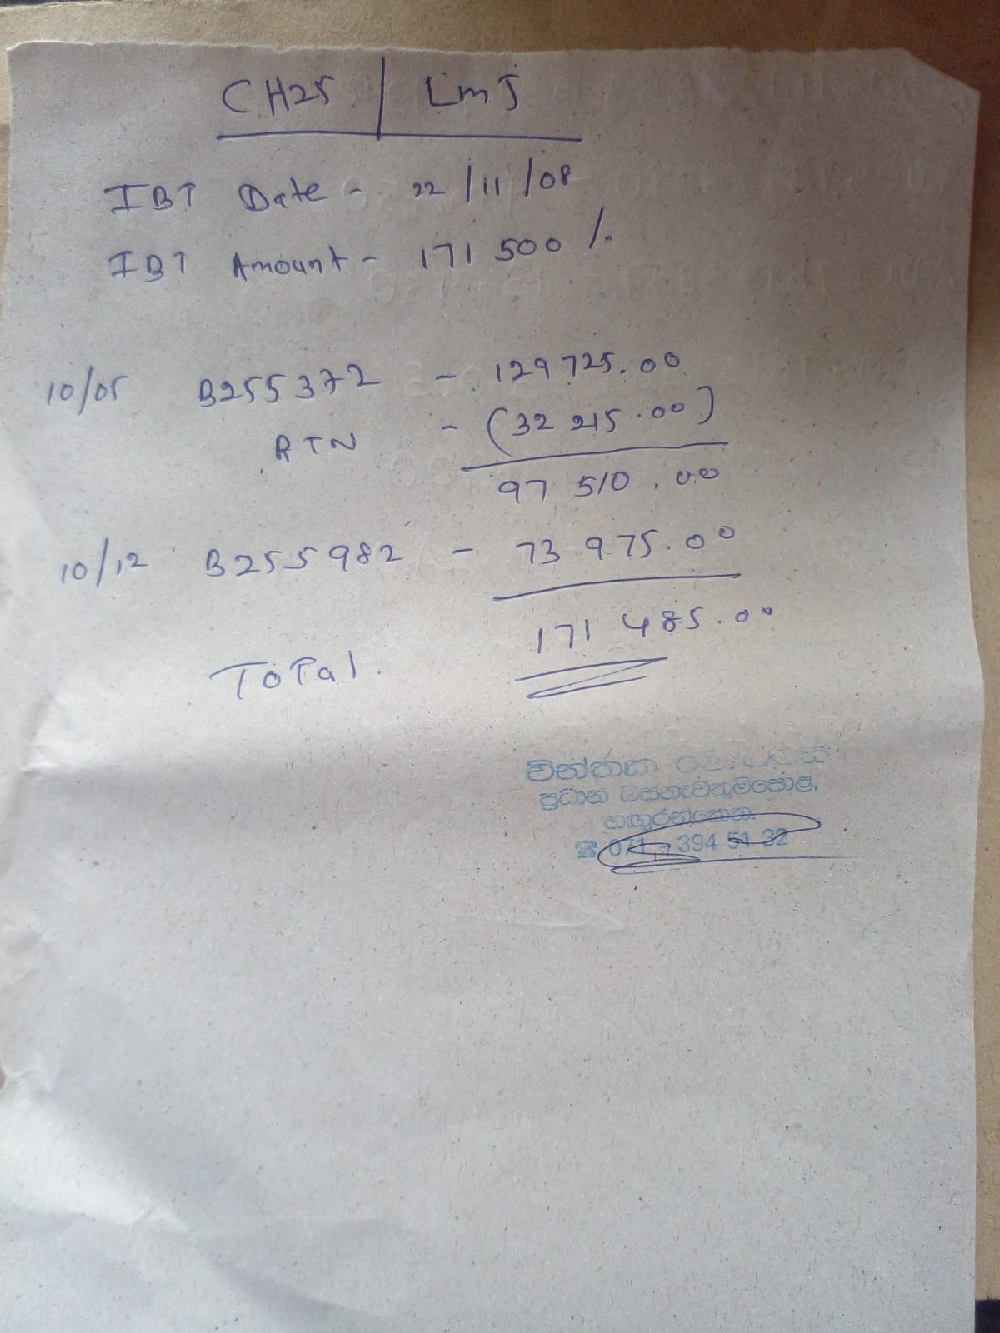 CH25 | LMJ
IBT Date - 22/11/08
IBT Amount - 171 500 /.
10/05 B255372 - 129725.00
RTN - (32 215.00)
97 510.00
10/12 B255982 - 73 975.00
171 485.00
ToTal.
චින්තක
ප්‍රධාන
394 51 32